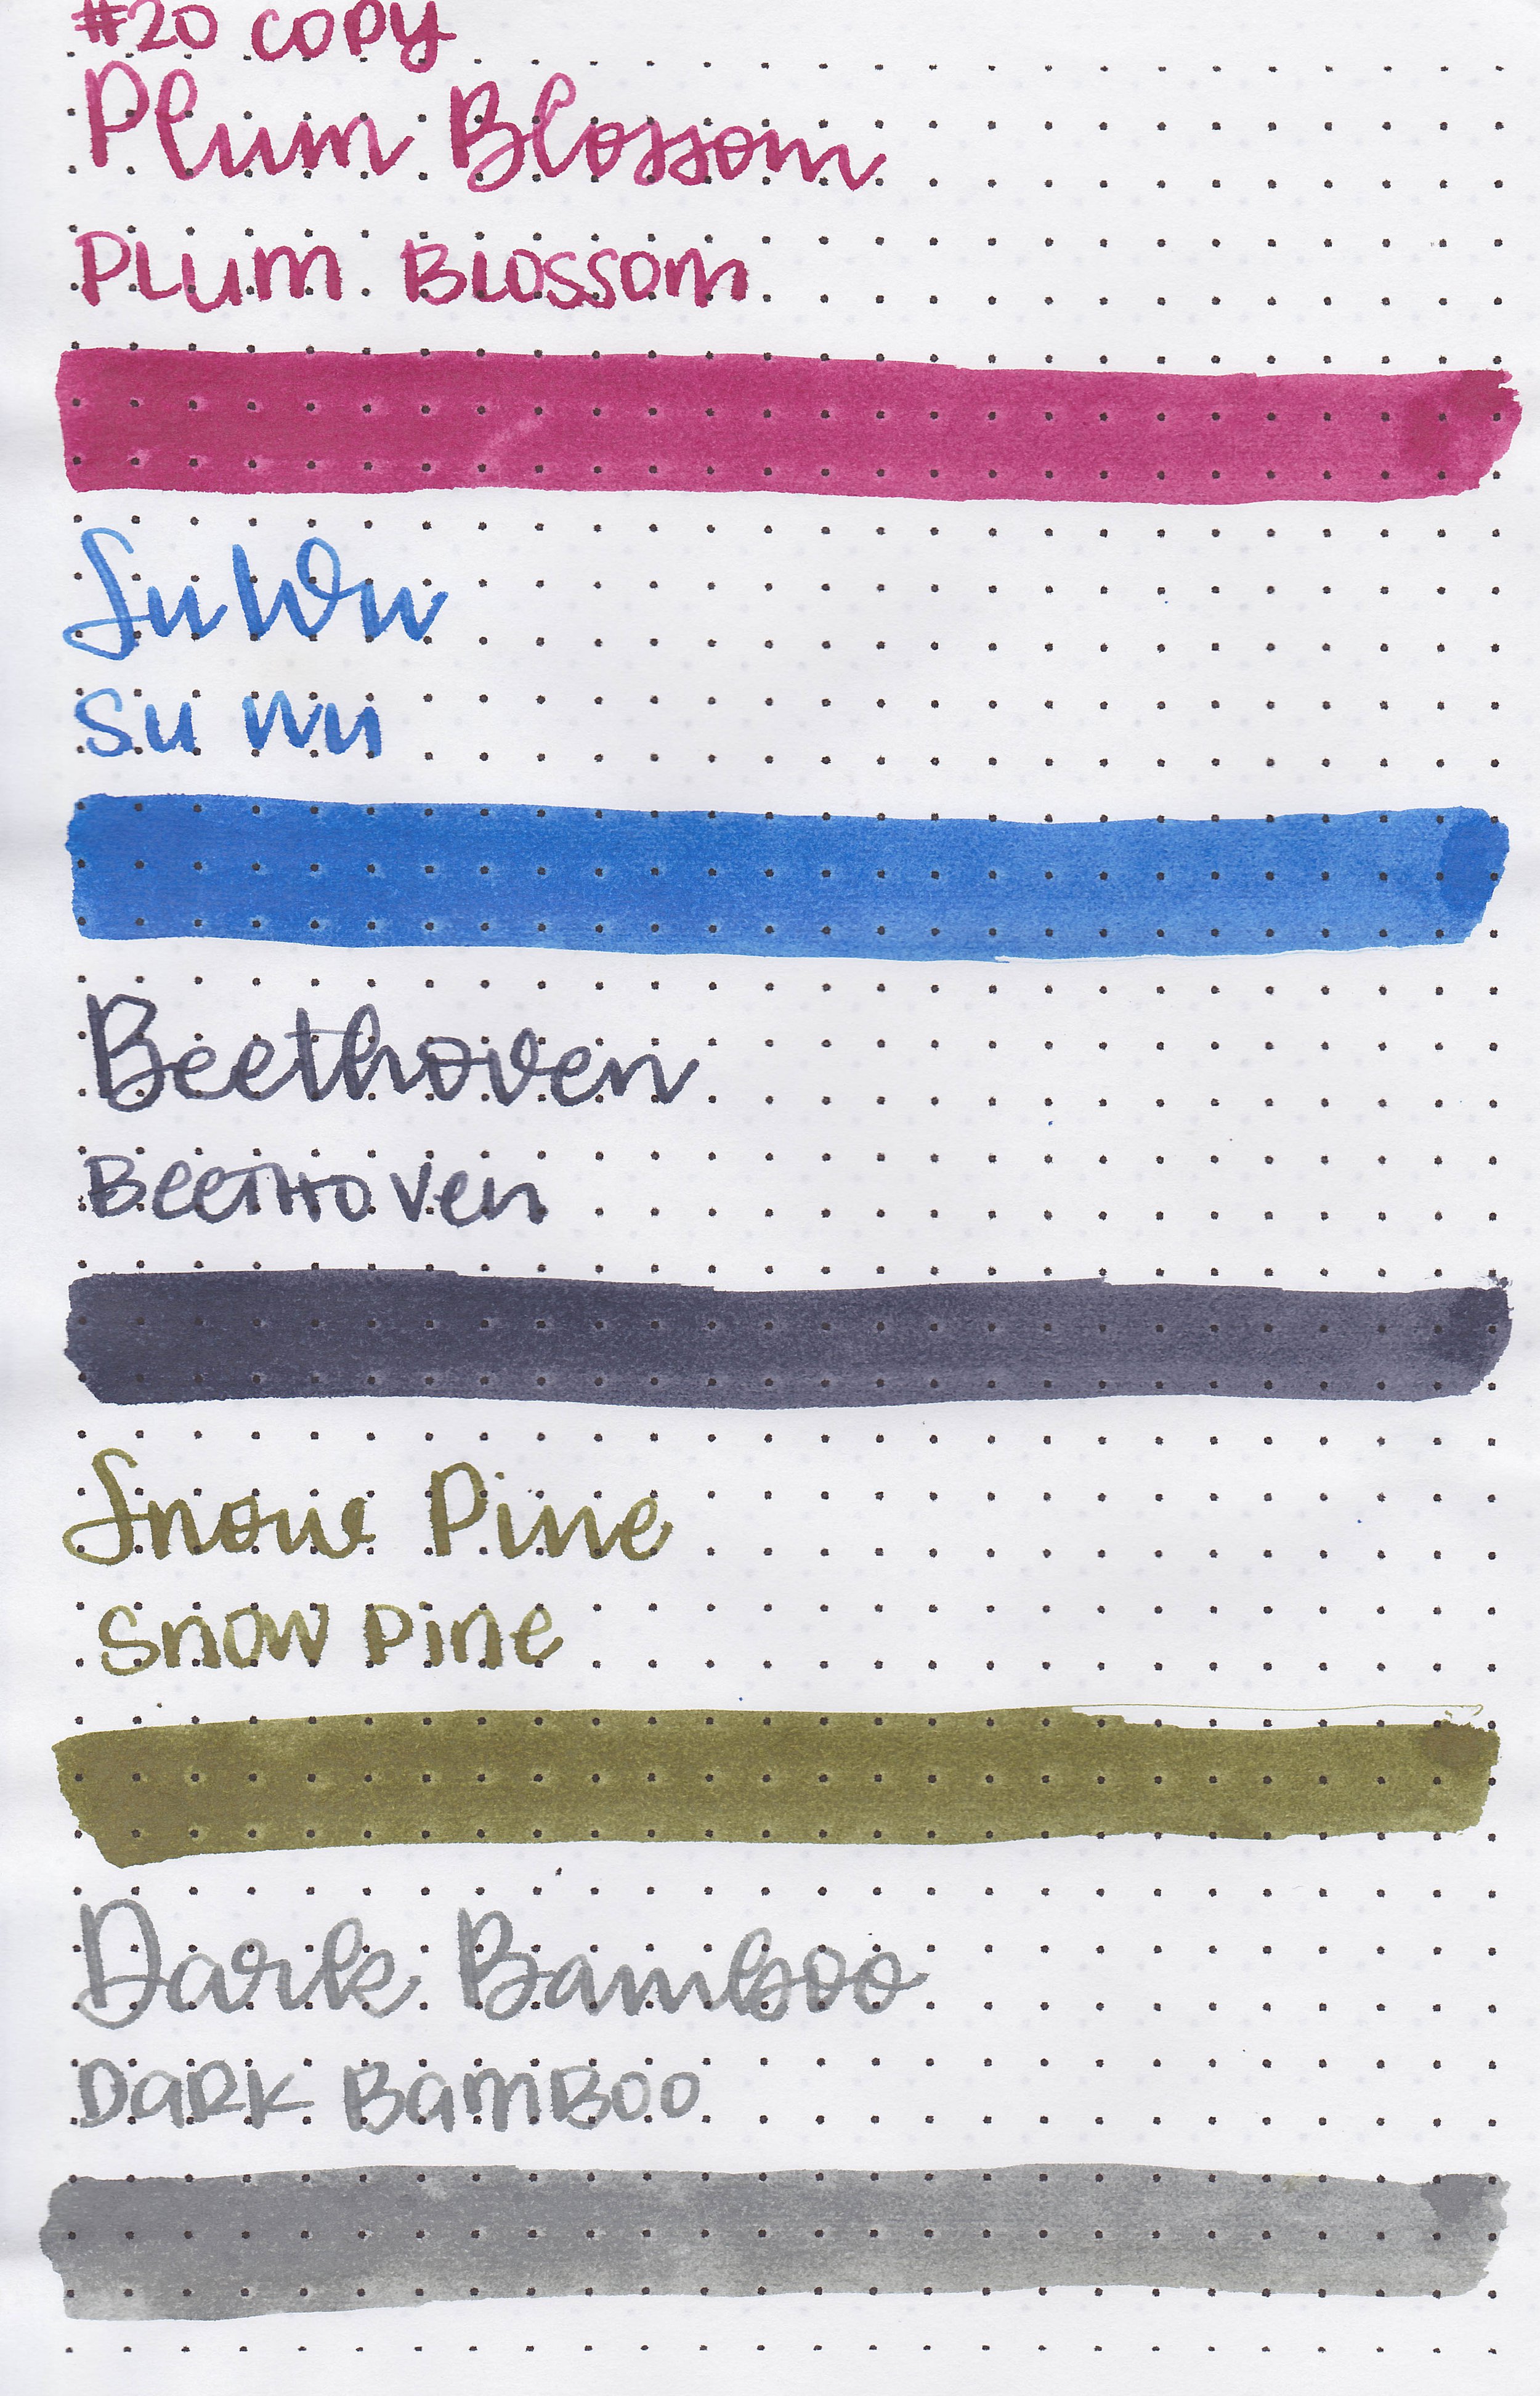 #20 copy
Plum Blossom
Plum Blossom
Su Wu
Su Wu
Beethoven
Beethoven
Snow Pine
Snow Pine
Dark Bamboo
Dark Bamboo